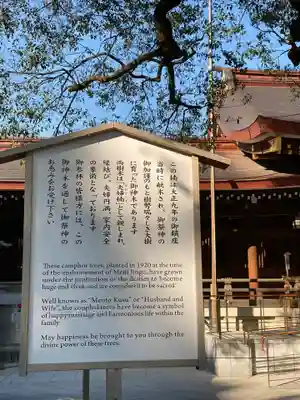 この楠は大正九年の御鎮座
当時に献木され、御祭神の
御加護のもと樹勢瑞々しき大樹
に育った御神木であります
両樹木は「夫婦楠」として親しまれ、
縁結び、夫婦円満、家内安全
の象徴となっております
御参拝の皆様方には、この
御神木を通して御祭神の
お恵みをお受け下さい
These camphor trees, planted in 1920 at the time
of the enshrinement of Meiji Jingu, have grown
under the protection of the deities to become
huge trees and are considered to be sacred.
Well known as "Meoto Kusu" or "Husband and
Wife", the couple trees have become a symbol
of happy marriage and harmonious life within the
family.
May happiness be brought to you through the
divine power of these trees.